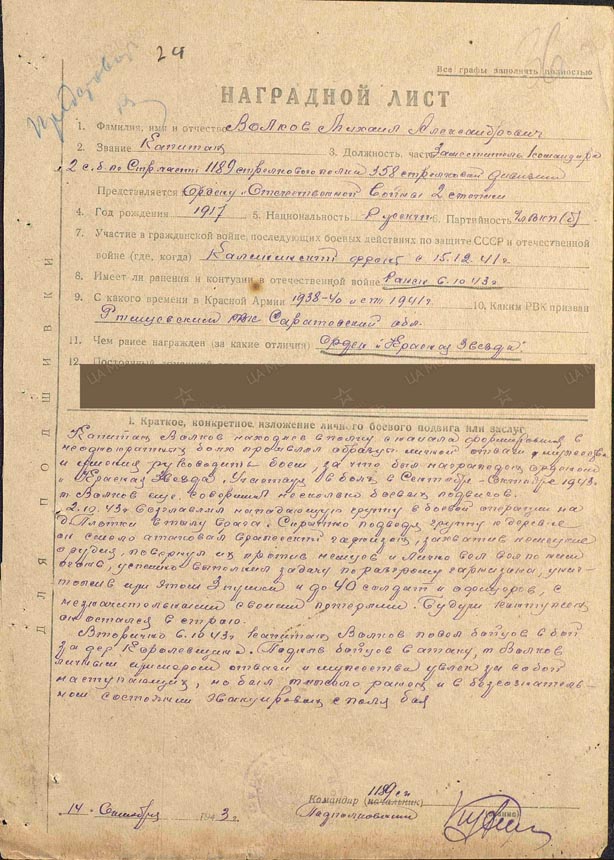 24
Все графы заполнять полностью
НАГРАДНОЙ ЛИСТ
1. Фамилия, имя и отчество Волков Михаил Александрович
2. Звание Капитан 3. Должность, часть Заместитель Командира
2 с.б. по Стр.части 1189 стрелкового полка 358 стрелковой дивизии
Представляется Ордену "Отечественной Войны 2 степени
4. Год рождения 1917 5. Национальность Русский 6. Партийность Чл ВКП(б)
7. Участие в гражданской войне, последующих боевых действиях по защите СССР и отечественной
войне (где, когда) Калининский фронт с 15.12.41г.
8. Имеет ли ранения и контузии в отечественной войне Ранен 6.10.43г.
9. С какого времени в Красной Армии 1938-40 и с 1941г. 10. Каким РВК призван
Ртищевским РВК Саратовской обл.
11. Чем ранее награжден (за какие отличия) Орден "Красная Звезда"
12.
ДЛЯ ПОДШИВКИ
I. Краткое, конкретное изложение личного боевого подвига или заслуг
Капитан Волков находясь в полку с начала формирования в
неоднократных боях проявлял образцы личной отваги, мужества
и умения руководить боем, за что был награжден орденом
"Красная Звезда". Участвуя в боях в Сентябре-Октябре 1943г.
т. Волков еще совершил несколько боевых подвигов.
2.10.43г. возглавлял нападающую группу в боевой операции на
д. Плотки в тылу врага. Скрытно подведя группу к деревне
он смело атаковал вражеский гарнизон, захватив немецкие
орудия, повернул их против немцев и лично вел по ним
огонь, успешно выполнил задачу по разгрому гарнизона, унич-
тожив при этом 3 пушки и до 40 солдат и офицеров, с
незначительными своими потерями. Будучи контужен
он остался в строю.
Вторично 6.10.43г. капитан Волков повел бойцов в бой
за дер. Королевщина. Подняв бойцов в атаку, т. Волков
личным примером отваги и мужества увлек за собой
наступающих, но был тяжело ранен и в безсознатель-
ном состоянии эвакуирован с поля боя
1189 сп
Командир (начальник)
14 1943 г. Подполковник